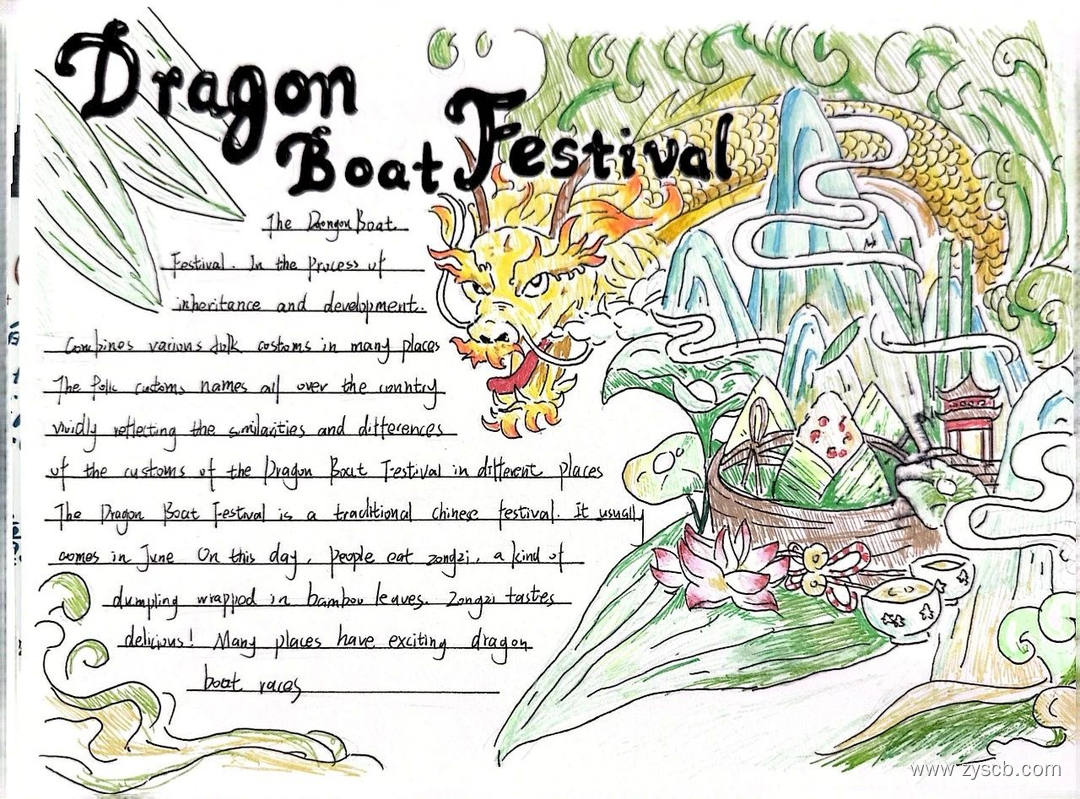 Dragon
Boat Festival
The Dongon Boat.
Festival. In the Process of
inheritance and development.
Combines various folk costoms in many places
The Polic customs names all over the country
vividly reflecting the similarities and differences
of the customs of the Dragon Boat Festival in different places
The Dragon Boat Festival is a traditional chinese festival. It usually
comes in June On this day, people eat zongzi, a kind of
dumpling wrapped in bamboo leaves. Zongzi tastes
delicious! Many places have exciting dragon
boat races
www.zyscb.com